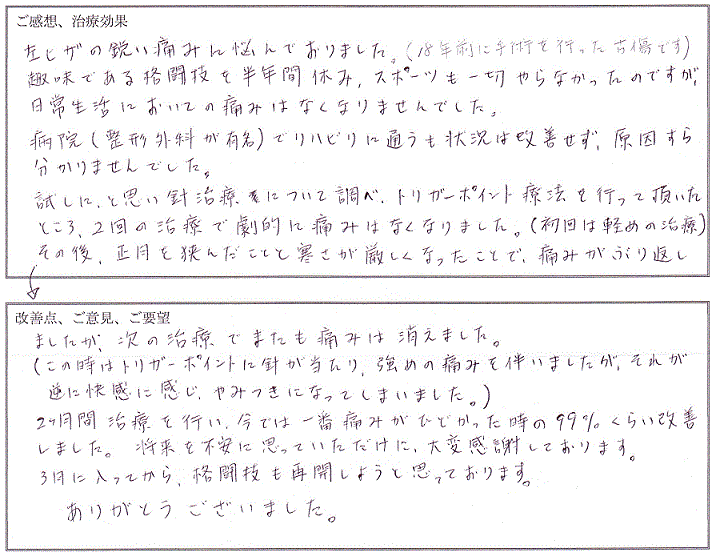 ご感想、治療効果
左ヒザの鋭い痛みに悩んでおりました。(18年前に手術を行った古傷です)
趣味である格闘技を半年間休み、スポーツも一切やらなかったのですが、
日常生活においての痛みはなくなりませんでした。
病院(整形外科が有名)でリハビリに通うも状況は改善せず、原因すら
分かりませんでした。
試しに、と思い針治療について調べ、トリガーポイント療法を行って頂いた
ところ、2回の治療で劇的に痛みはなくなりました。(初回は軽めの治療)
その後、正月を挟んだことと寒さが厳しくなったことで、痛みがぶり返し
改善点、ご意見、ご要望
ましたが、次の治療でまたも痛みは消えました。
(この時はトリガーポイントに針が当たり、強めの痛みを伴いましたが、それが
逆に快感に感じ、やみつきになってしまいました。)
2ヶ月間治療を行い、今では一番痛みがひどかった時の99%くらい改善
しました。将来を不安に思っていただけに、大変感謝しております。
3月に入ってから、格闘技も再開しようと思っております。
ありがとうございました。